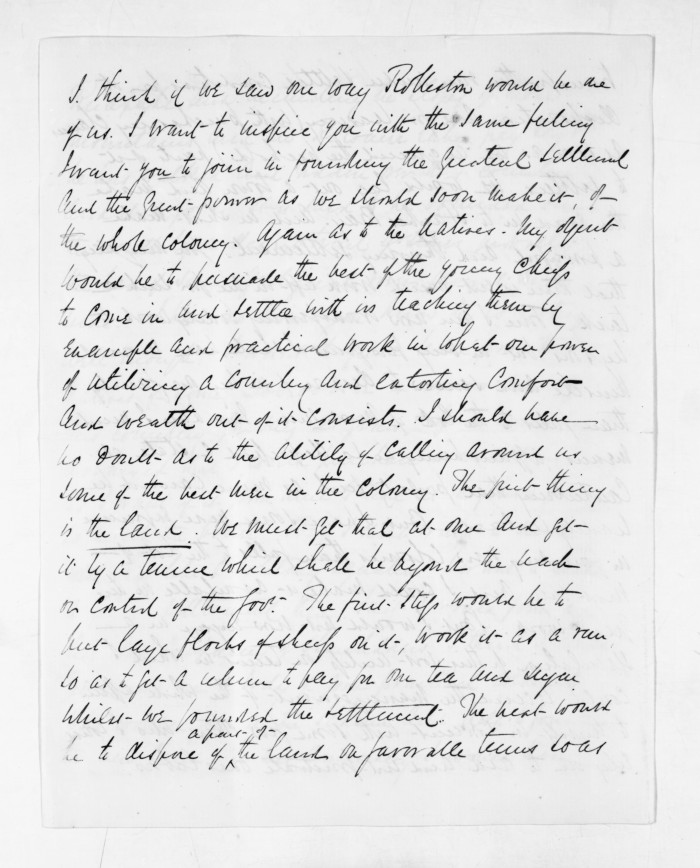 I think if we saw our way Rolleston would be one
of us. I want to inspire you with the same feeling
I want you to join in founding the greatest settlement
and the great power as we should soon make it, of
the whole colony. Again as to the Natives - My object
would be to persuade the best of the young Chiefs
to come in and settle with us teaching them by
example and practical work in what our power
of utilizing a country and extorting comfort
and wealth out of it consists. I should have
no doubt as to the utility of calling around us
some of the best men in the colony. The first thing
is the land. We must get that at once and get
it by a tenure which shall be beyond the reach
or control of the Govt. The first step would be to
put large flocks of sheep on it, work it as a run
so as to get a return to pay for our tea and sugar
whilst we founded the settlement. The next would
be to dispose of a part of the land on favorable terms so as